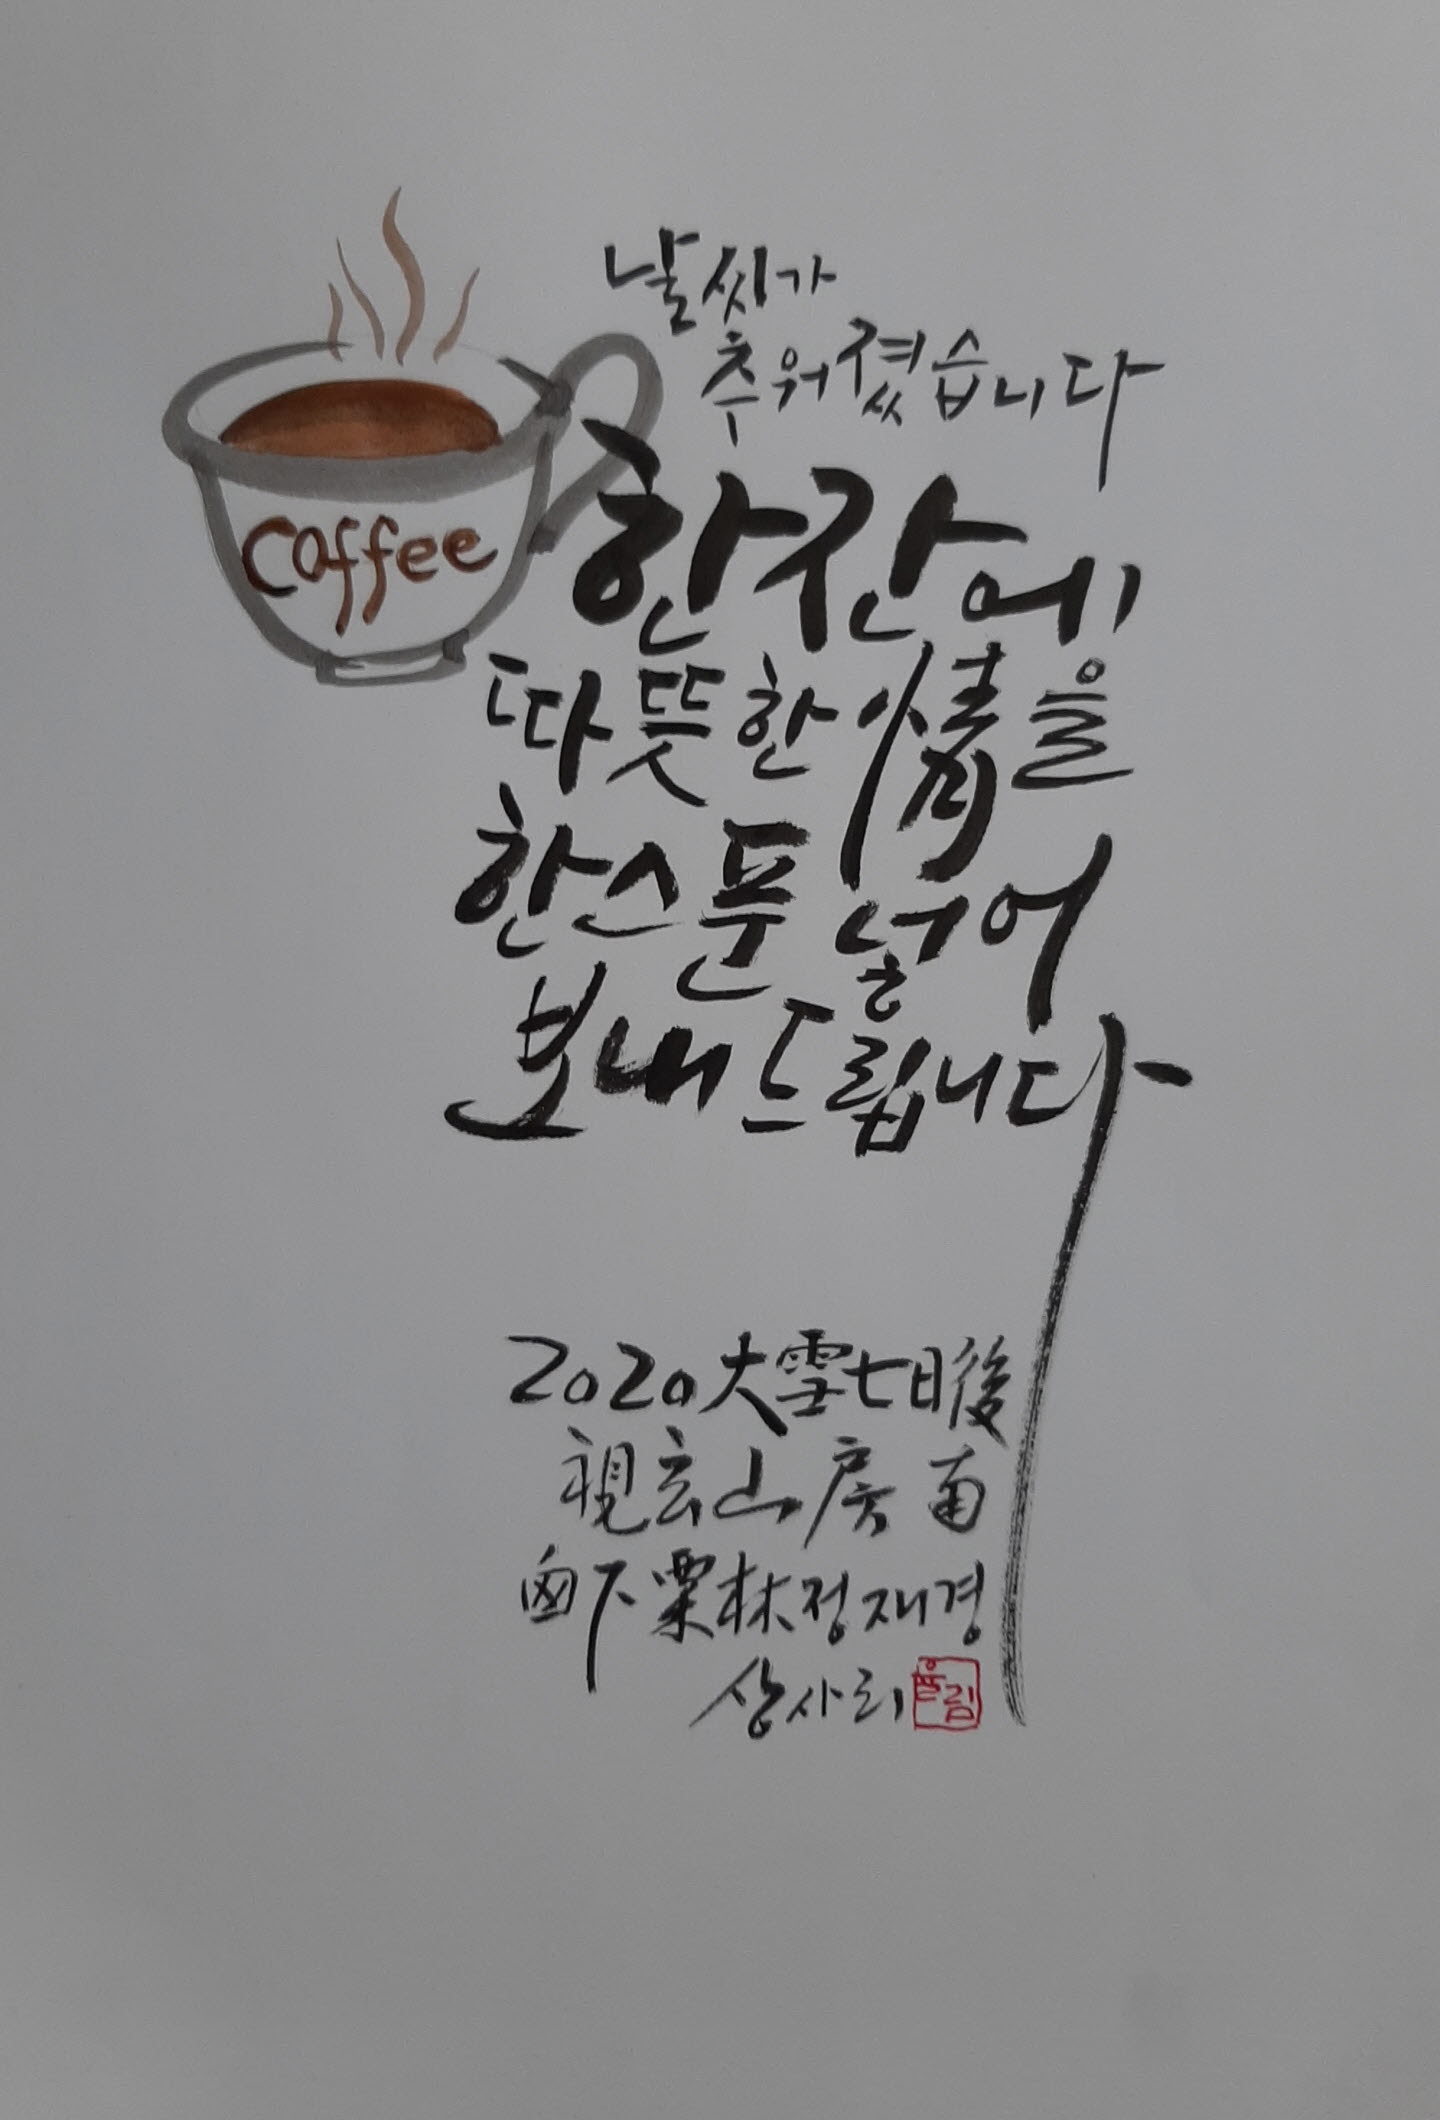 날씨가
추워졌습니다
한잔에
따뜻한 情을
한스푼 넣어
보내드립니다
coffee
2020 大雪七日後
視玄山房 南
下 栗林 정재경
상사리
율림